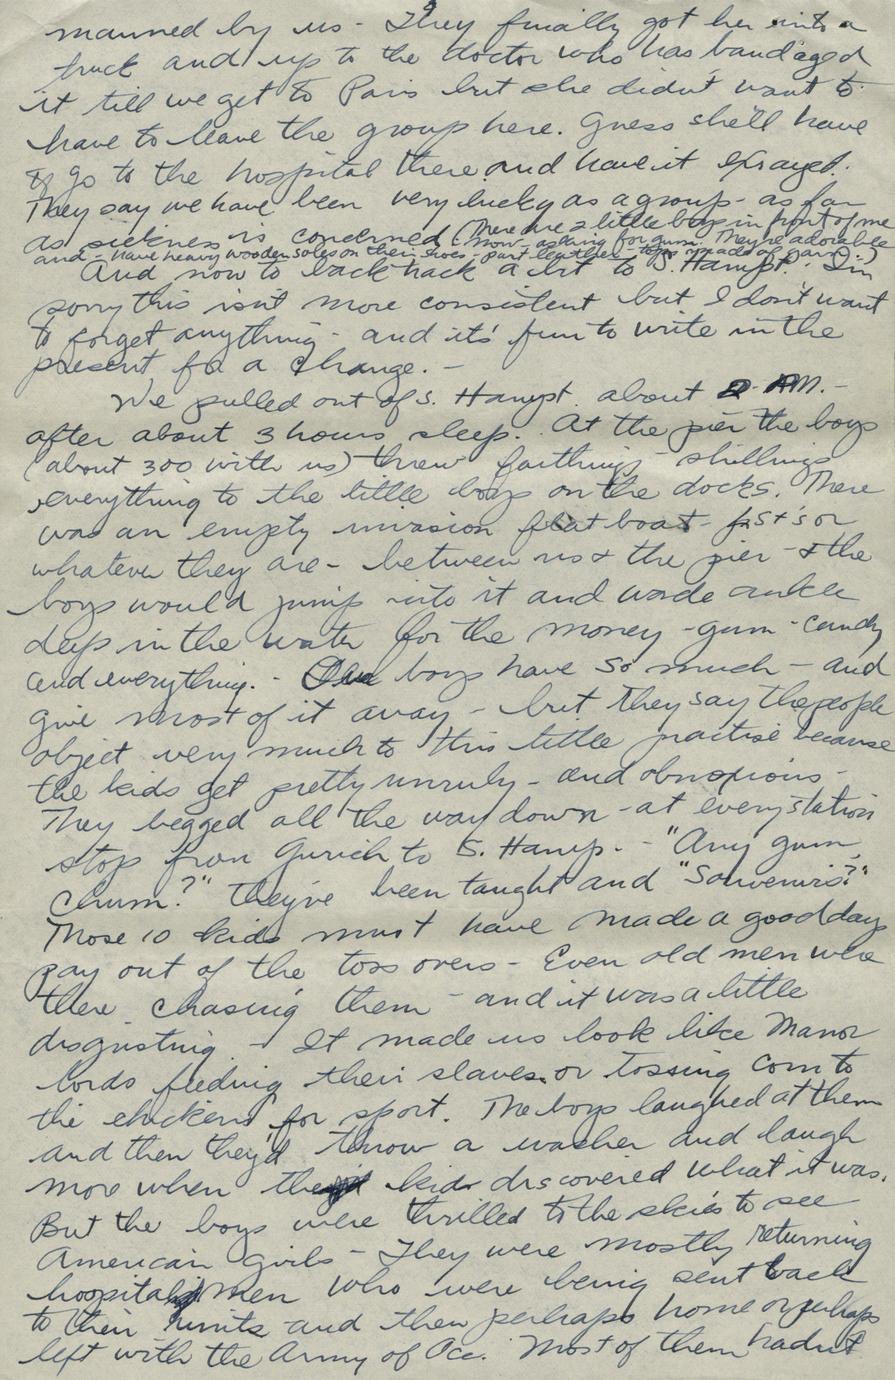 manned by us - They finally got her into a
truck and up to the doctor who has bandaged
it till we get to Paris but she didn't want to
have to leave the group here. Guess she'll have
to go to the hospital there and have it xrayed.
They say we have been very lucky as a group - as far
as sickness is concerned (There are 2 little boys in front of me
now - asking for gum. They're adorable
and - have heavy wooden soles on their shoes - part leather - tops made of
And now to back track a bit to S. Hampt. I'm
sorry this isn't more consistent but I don't want
to forget anything - and it's fun to write in the
present for a change. -
We pulled out of S. Hampt. about 2 AM. -
after about 3 hours sleep. At the pier the boys
(about 300 with us) threw farthings - shillings
everything to the little boys on the docks. There
was an empty invasion flat boat - or
whatever they are - between us & the pier - & the
boys would jump into it and wade ankle
deep in the water for the money - gum - candy
and everything. - Our boys have so much - and
give most of it away - but they say the people
object very much to this little practise because
the kids get pretty unruly - and obnoxious -
They begged all the way down - at every station
stop from to S. Hamp. - "Any gum,
Chum?" they've been taught and "Souvenirs?"
Those 10 kids must have made a good days
pay out of the toss overs - Even old men were
there chasing them - and it was a little
disgusting - It made us look like Manor
lords feeding their slaves or tossing corn to
the chickens for sport. The boys laughed at them
and then they'd throw a washer and laugh
more when the kids discovered what it was.
But the boys were thrilled to the skies to see
American girls - They were mostly returning
hospital men who were being sent back
to their units and then perhaps home or perhaps
left with the Army of Occ. Most of them hadn't